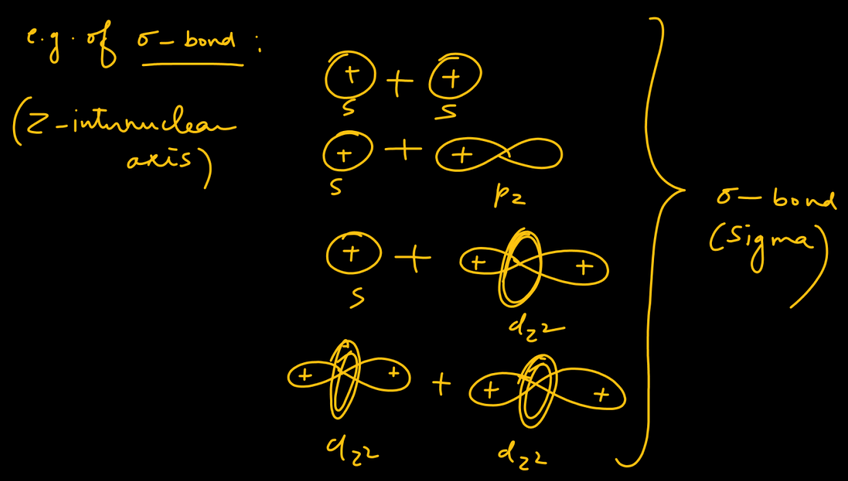 e.g. of σ-bond :
(Z-internuclear
axis)
+ + +
s s
+ + +
s pz
+ + + +
s dz2
+ + + + +
dz2 dz2
σ-bond
(Sigma)